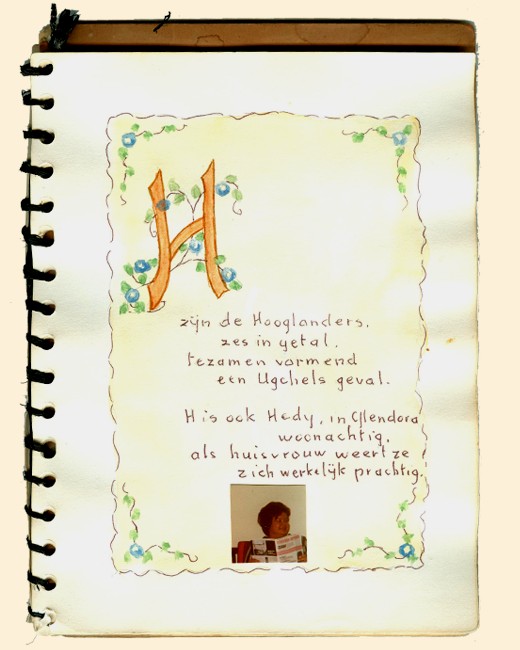 H
zijn de Hooglanders,
zes in getal,
tezamen vormend
een Ugchels geval.
H is ook Hedy, in Glendora
woonachtig,
als huisvrouw weert ze
zich werkelijk prachtig.